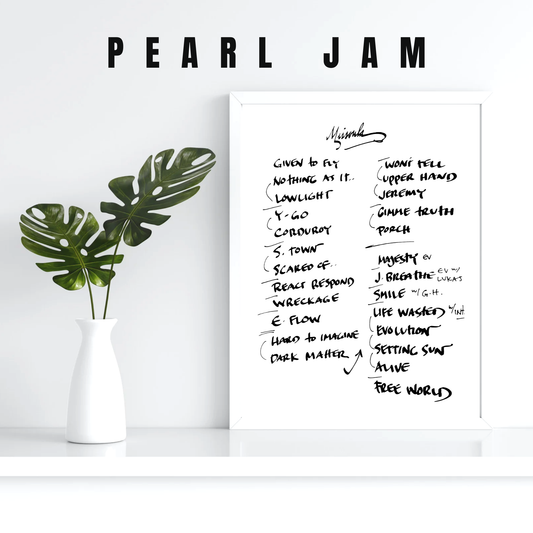 PEARL JAM
Missoula
GIVEN to FLY
NOTHING AS IT..
LOWLIGHT
Y-GO
CORDUROY
S. TOWN
SCARED OF..
REACT RESPOND
WRECKAGE
E. FLOW
HARD to IMAGINE
DARK MATTER
WON'T TELL
UPPER HAND
JEREMY
GIMME TRUTH
PORCH
MAJESTY EV
J. BREATHE EV w/ LUKAS
SMILE w/ G.H.
LIFE WASTED w/INT
EVOLUTION
SETTING SUN
ALIVE
FREE WORLD